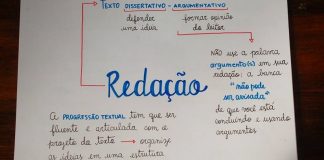 TEXTO DISSERTATIVO - ARGUMENTATIVO
defender
uma ideia
formar opinião
do leitor
Redação
NÃO USE A PALAVRA
ARGUMENTO(S) EM SUA
REDAÇÃO: A BANCA
"não pode
ser avisada"
DE QUE VOCÊ ESTÁ
CONCLUINDO E USANDO
ARGUMENTOS
A PROGRESSÃO TEXTUAL TEM QUE SER
FLUENTE E ARTICULADA COM O
PROJETO DE TEXTO → ORGANIZE
AS IDEIAS EM UMA ESTRUTURA